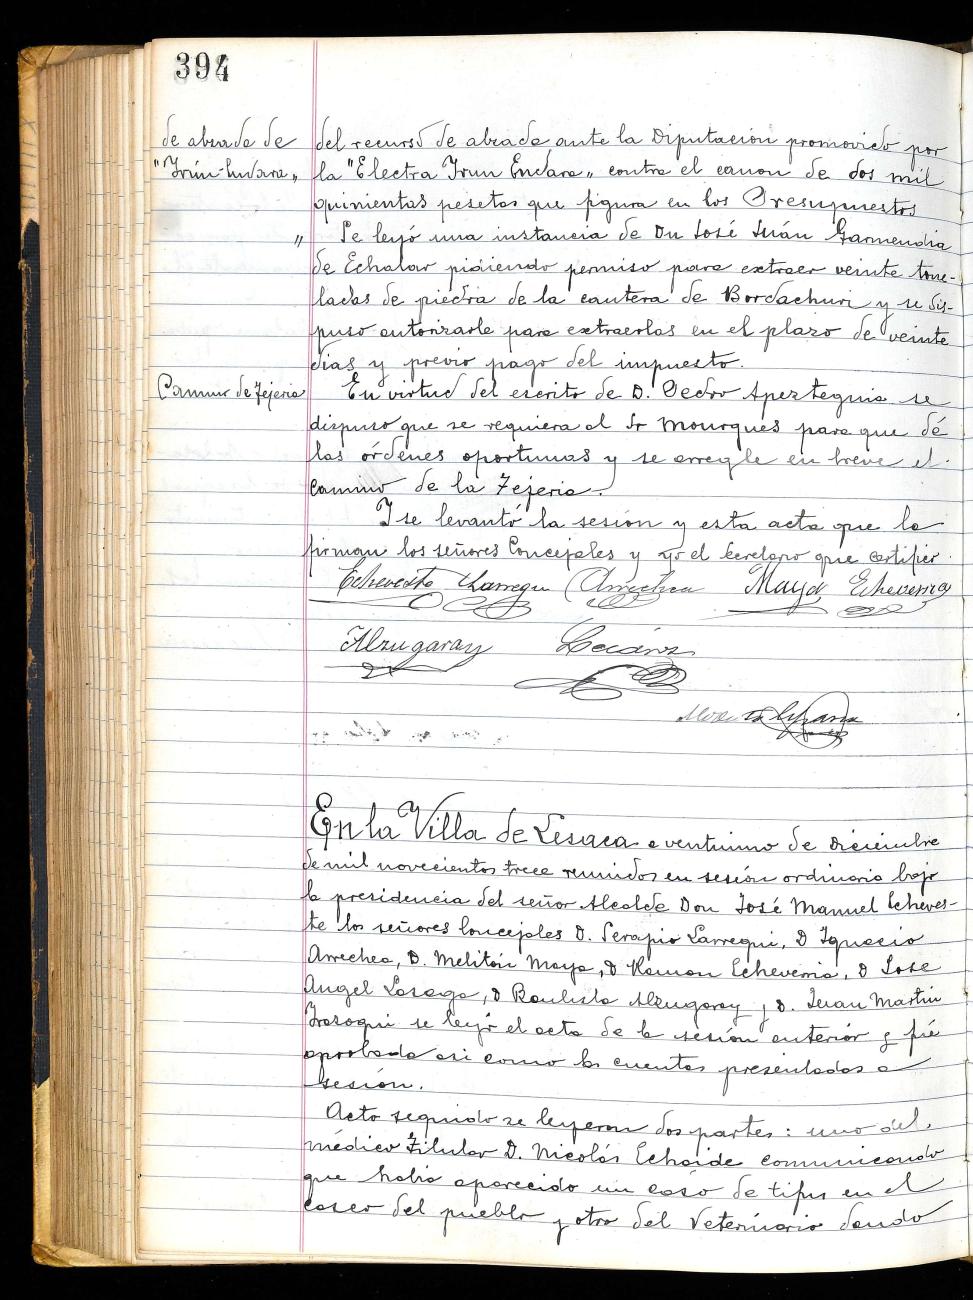 394
de alzada de
"Irún-Endara"
del recurso de alzada ante la Diputación promovido por
la "Electra Irun Endara" contra el canon de dos mil
quinientas pesetas que figura en los Presupuestos
" Se leyó una instancia de Dn José Juán Garmendia
de Echalar pidiendo permiso para extraer veinte tone-
ladas de piedra de la cantera de Bordachuri y se dis-
puso autorizarle para extraerlas en el plazo de veinte
días y previo pago del impuesto.
Camino de Tejeria
En virtud del escrito de D. Pedro Apezteguia se
dispuso que se requiera al Sr Mourgues para que dé
las órdenes oportunas y se arregle en breve el
camino de la Tejeria.
Y se levantó la sesión y esta acta que la
firman los señores Concejales y yo el Secretario que certifico
Echeveste Larregui Arrechea Maya Echeverria
Alzugaray
En la Villa de Lesaca a ventiuno de Diciembre
de mil novecientos trece reunidos en sesión ordinaria bajo
la presidencia del señor Alcalde Don José Manuel Echeves-
te los señores Concejales D. Serapio Larregui, D Ignacio
Arrechea, D. Melitón Maya, D Ramon Echeverria, D Jose
Angel Lasaga, D Bautista Alzugaray y D. Juan Martin
Irazoqui se leyó el acta de la sesión anteriór y fué
aprobada asi como las cuentas presentadas a
sesión.
Acto seguido se leyeron dos partes: uno del
médico Titular D. Nicolás Echaide comunicando
que habia aparecido un caso de tifus en el
casco del pueblo y otro del Veterinario dando